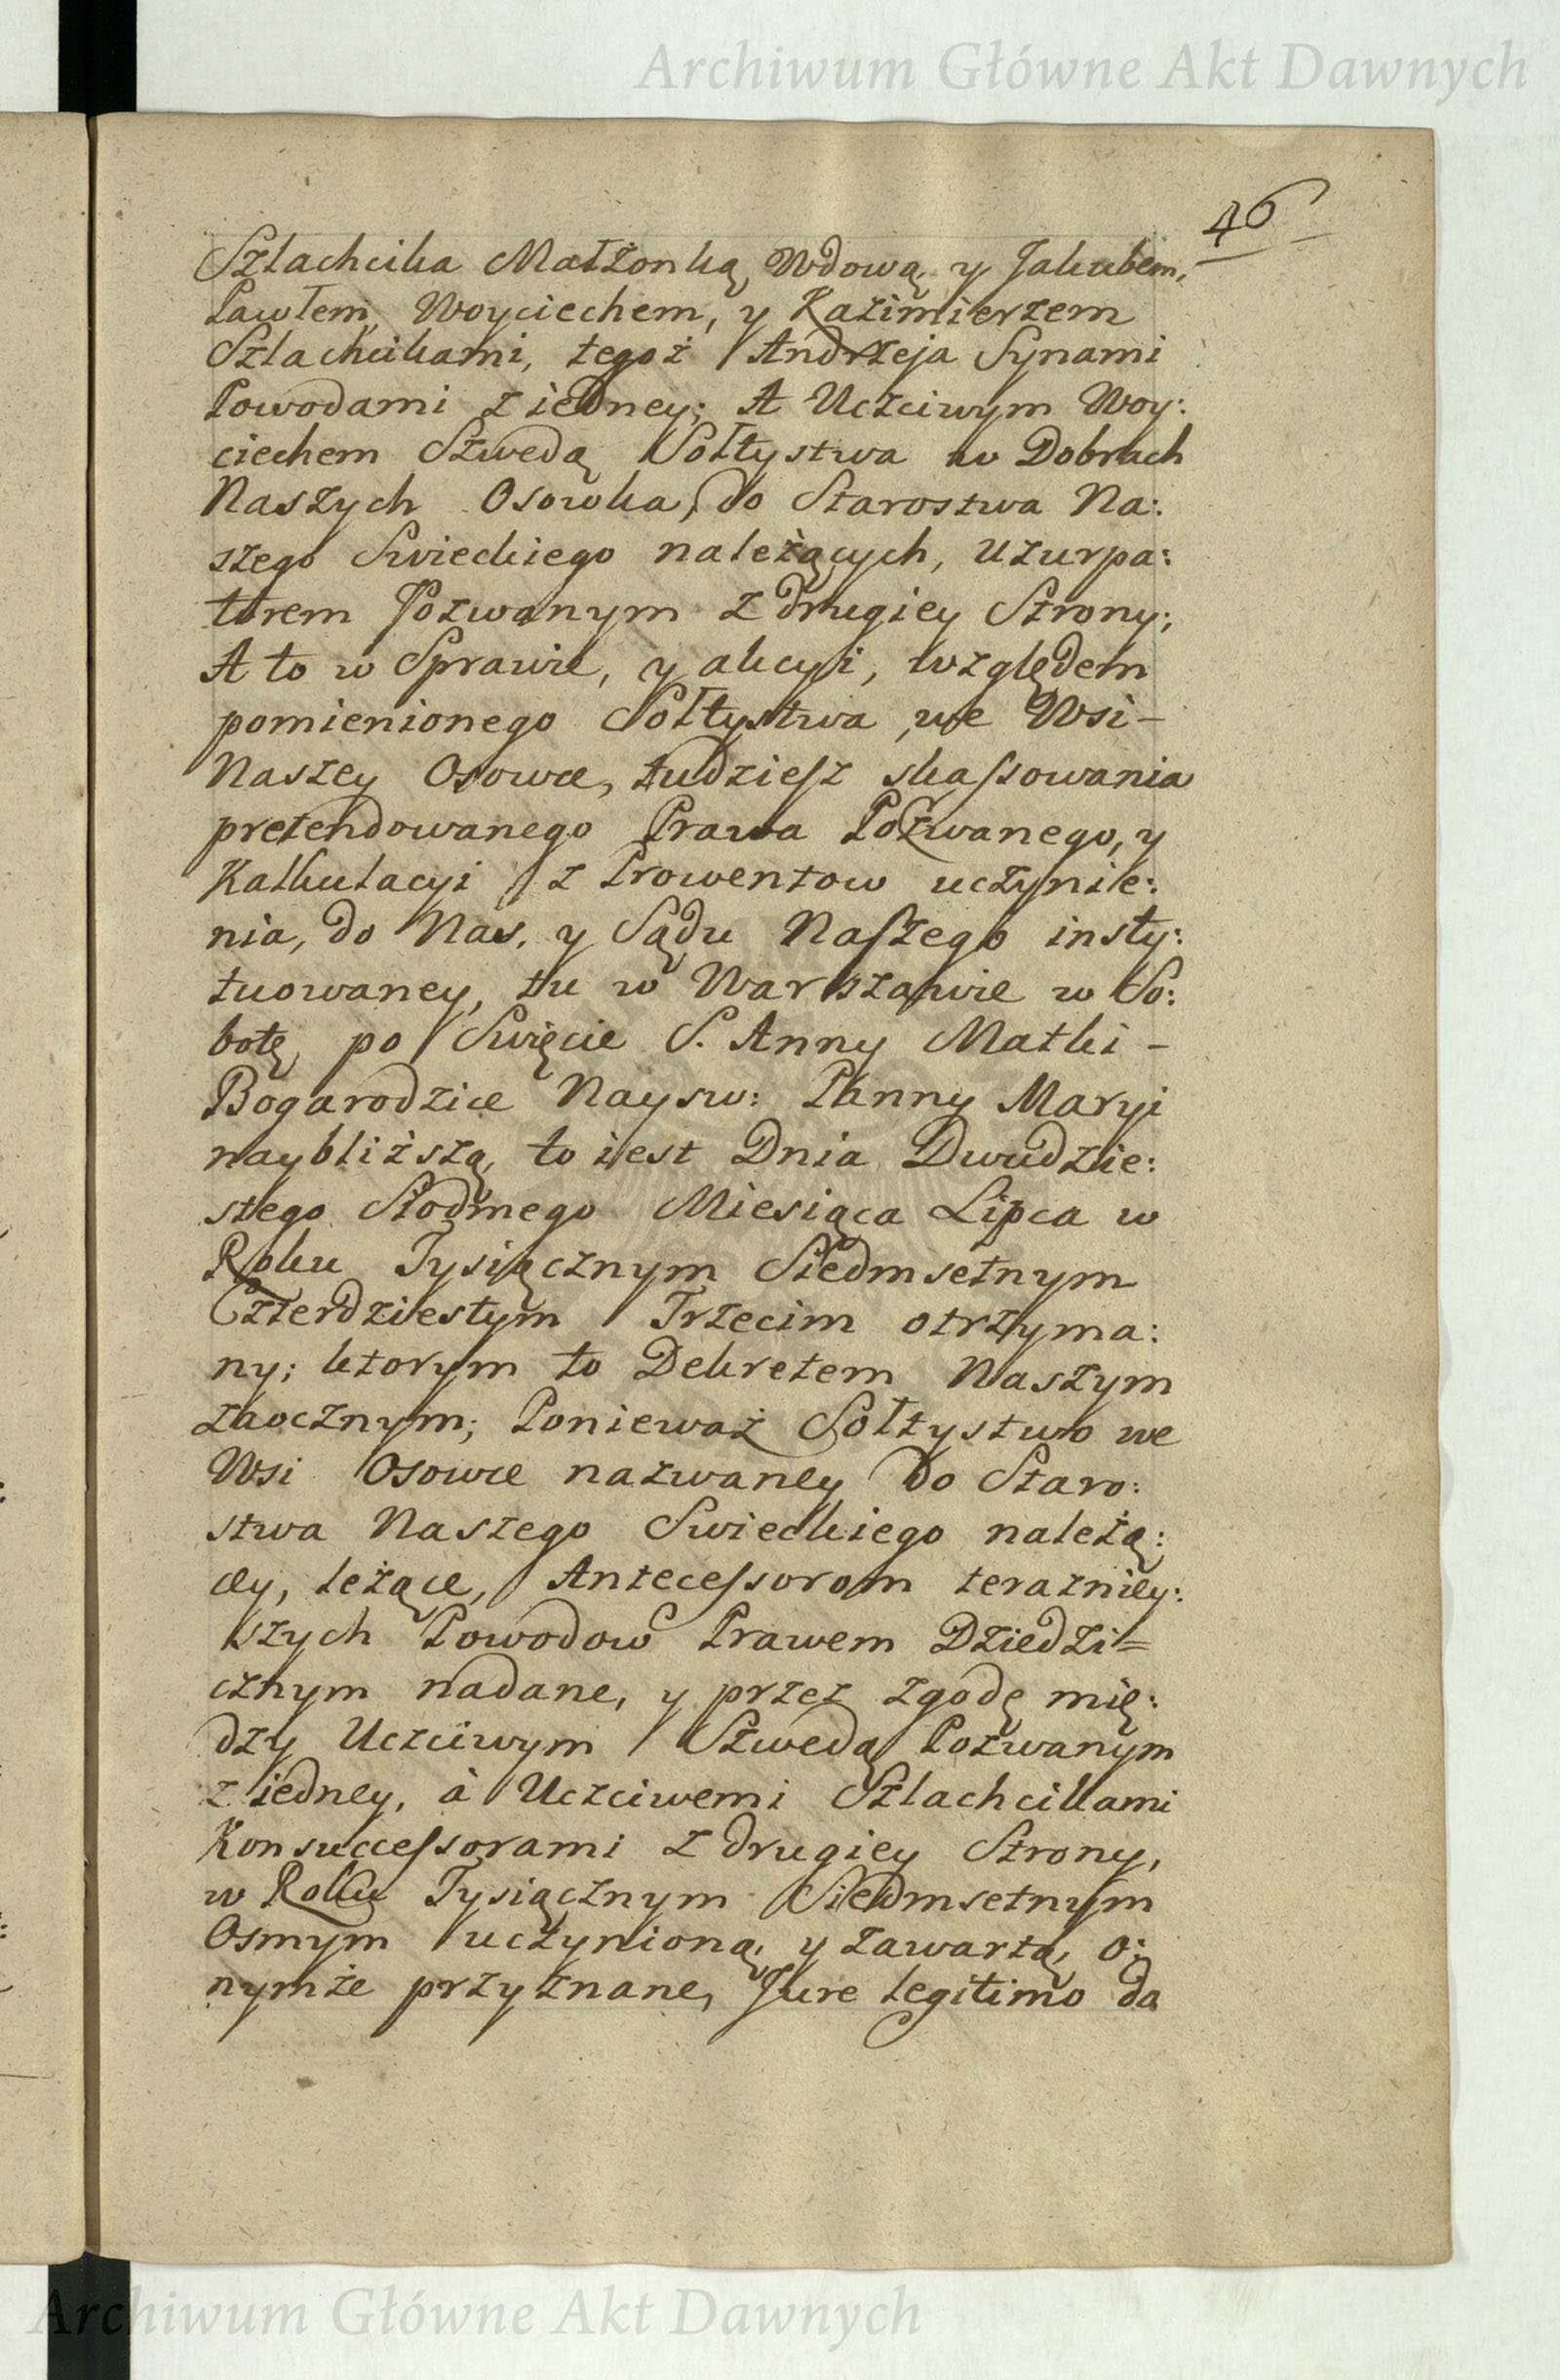 Archiwum Główne Akt Dawnych
46
Szlachcika Małżonką Wdową, y Jakubem,
Pawłem, Woyciechem, y Kazimierzem
Szlachcikami, tegoż Andrzeja Synami
Powodami z iedney; A Uczciwym Woy:
ciechem Szwedą Sołtystwa w Dobrach
Naszych Osowka, do Starostwa Na:
szego Swieckiego należących, Uzurpa:
torem Pozwanym z drugiey Strony;
A to w Sprawie, y akcyi, względem
pomienionego Sołtystwa we Wsi –
Naszey Osowce, tudziesz skassowania
pretendowanego Prawa Pozwanego, y
Kalkulacyi z Prowentow uczynie:
nia, do Nas, y Sądu Naszego insty:
tuowaney, tu w Warszawie w So:
botę po Swięcie S. Anny Matki –
Bogarodzice Nayśw: Panny Maryi
naybliższą, to iest Dnia Dwudzie:
stego Siodmego Miesiąca Lipca w
Roku Tysiącznym Siedmsetnym
Czterdziestym Trzecim otrzyma:
ny; ktorym to Dekretem Naszym
zaocznym; Ponieważ Sołtystwo we
Wsi Osowce nazwaney do Staro:
stwa Naszego Swieckiego należą:
cey, leżące, Antecessorom teraźniey:
szych Powodow Prawem Dziedzi=
cznym nadane, y przez zgodę mię:
dzy Uczciwym Szwedą Pozwanym
z iedney, à Uczciwemi Szlachcikami
Konsuccessorami z drugiey Strony,
w Roku Tysiącznym Siedmsetnym
Osmym uczynioną, y zawartą, o:
nymże przyznane, Jure legitimo da
Archiwum Główne Akt Dawnych